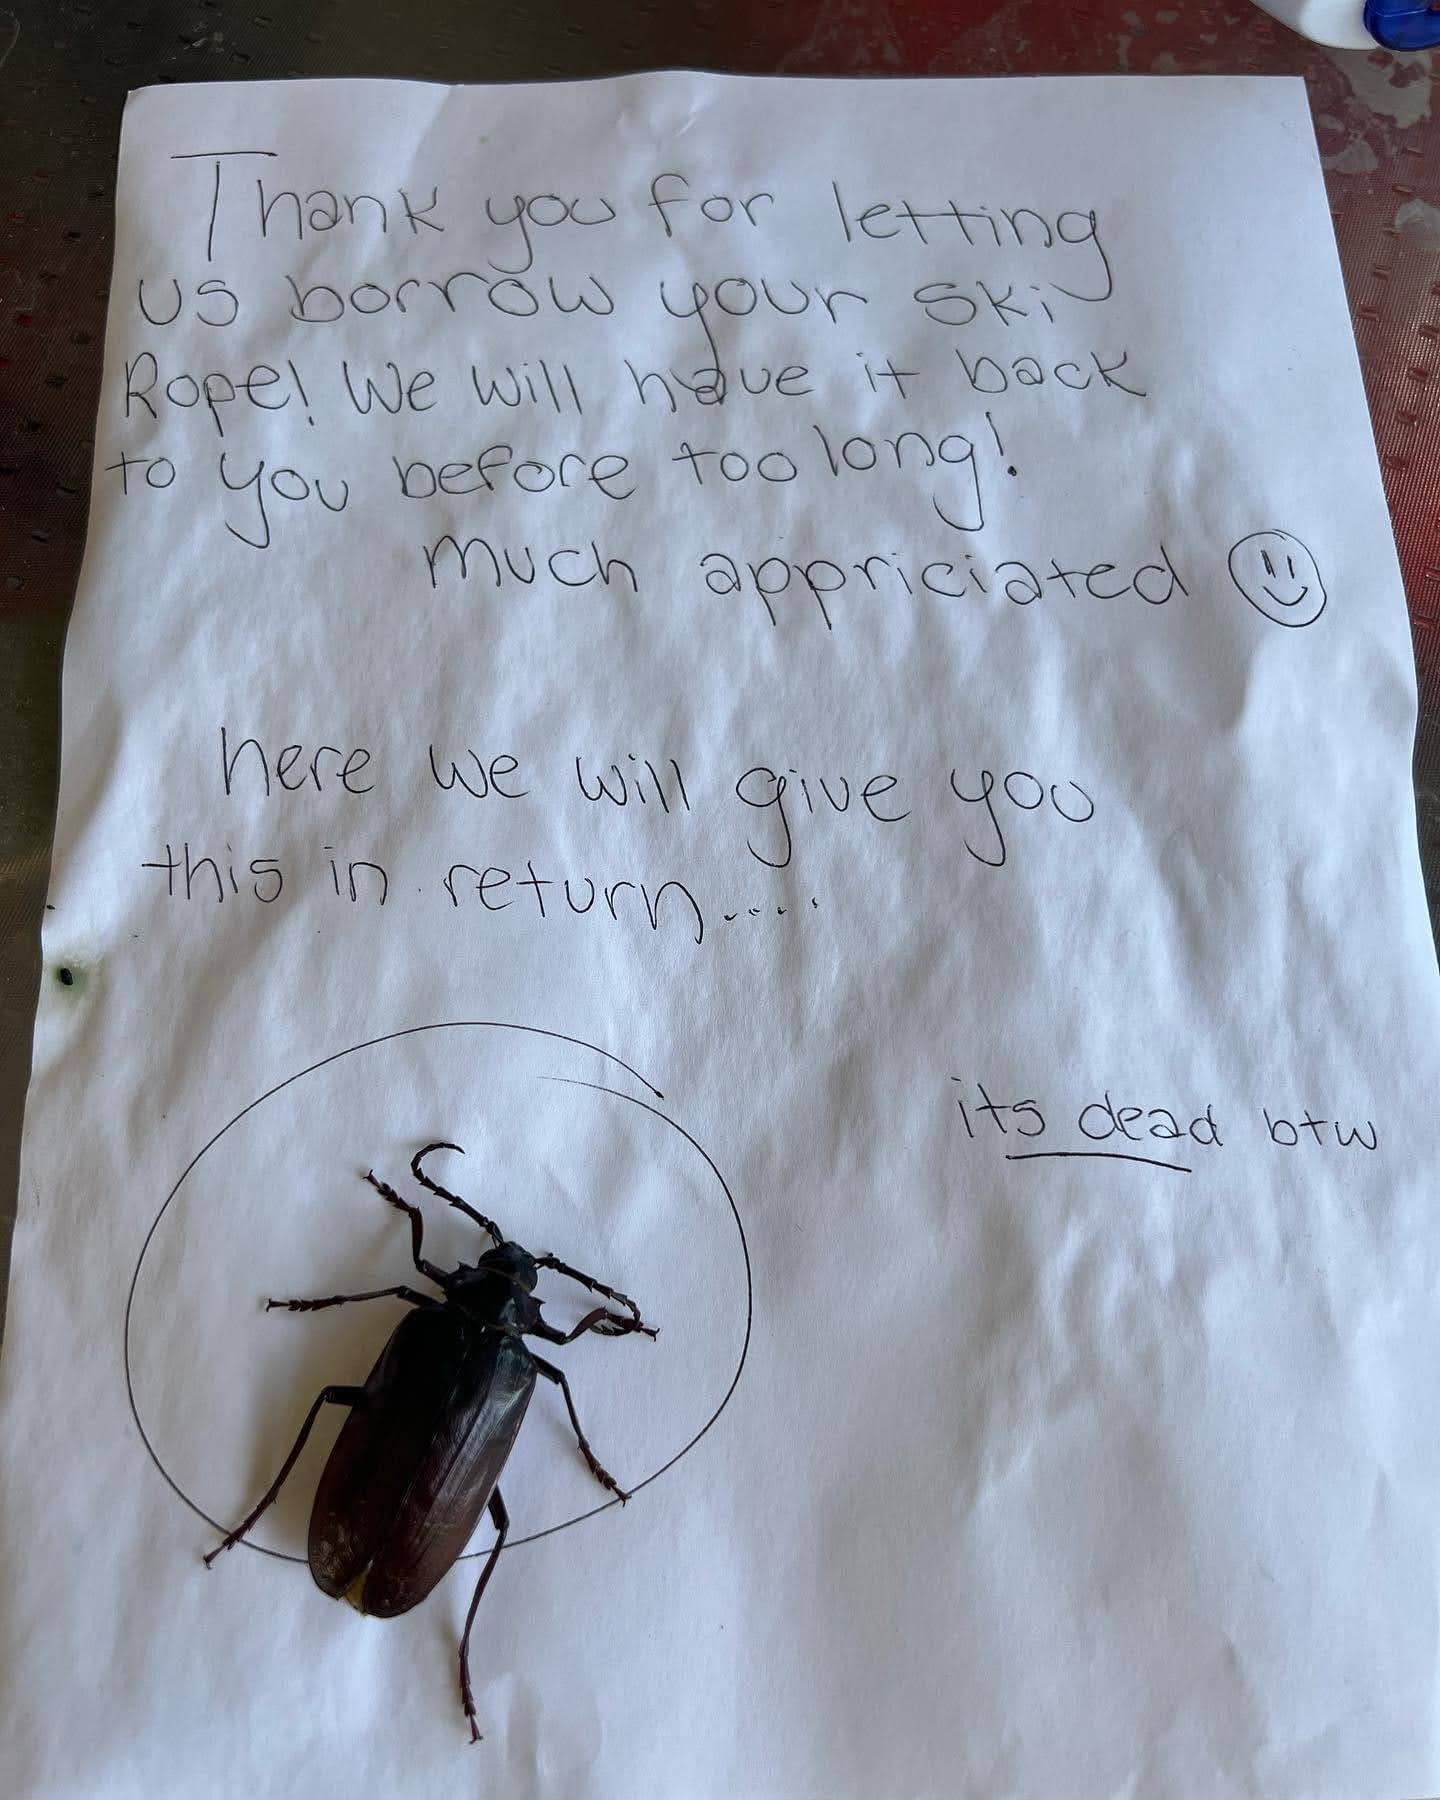 Thank you for letting
us borrow your ski
Rope! We will have it back
to you before too long!
much appriciated
here we will give you
this in return.....
its dead btw